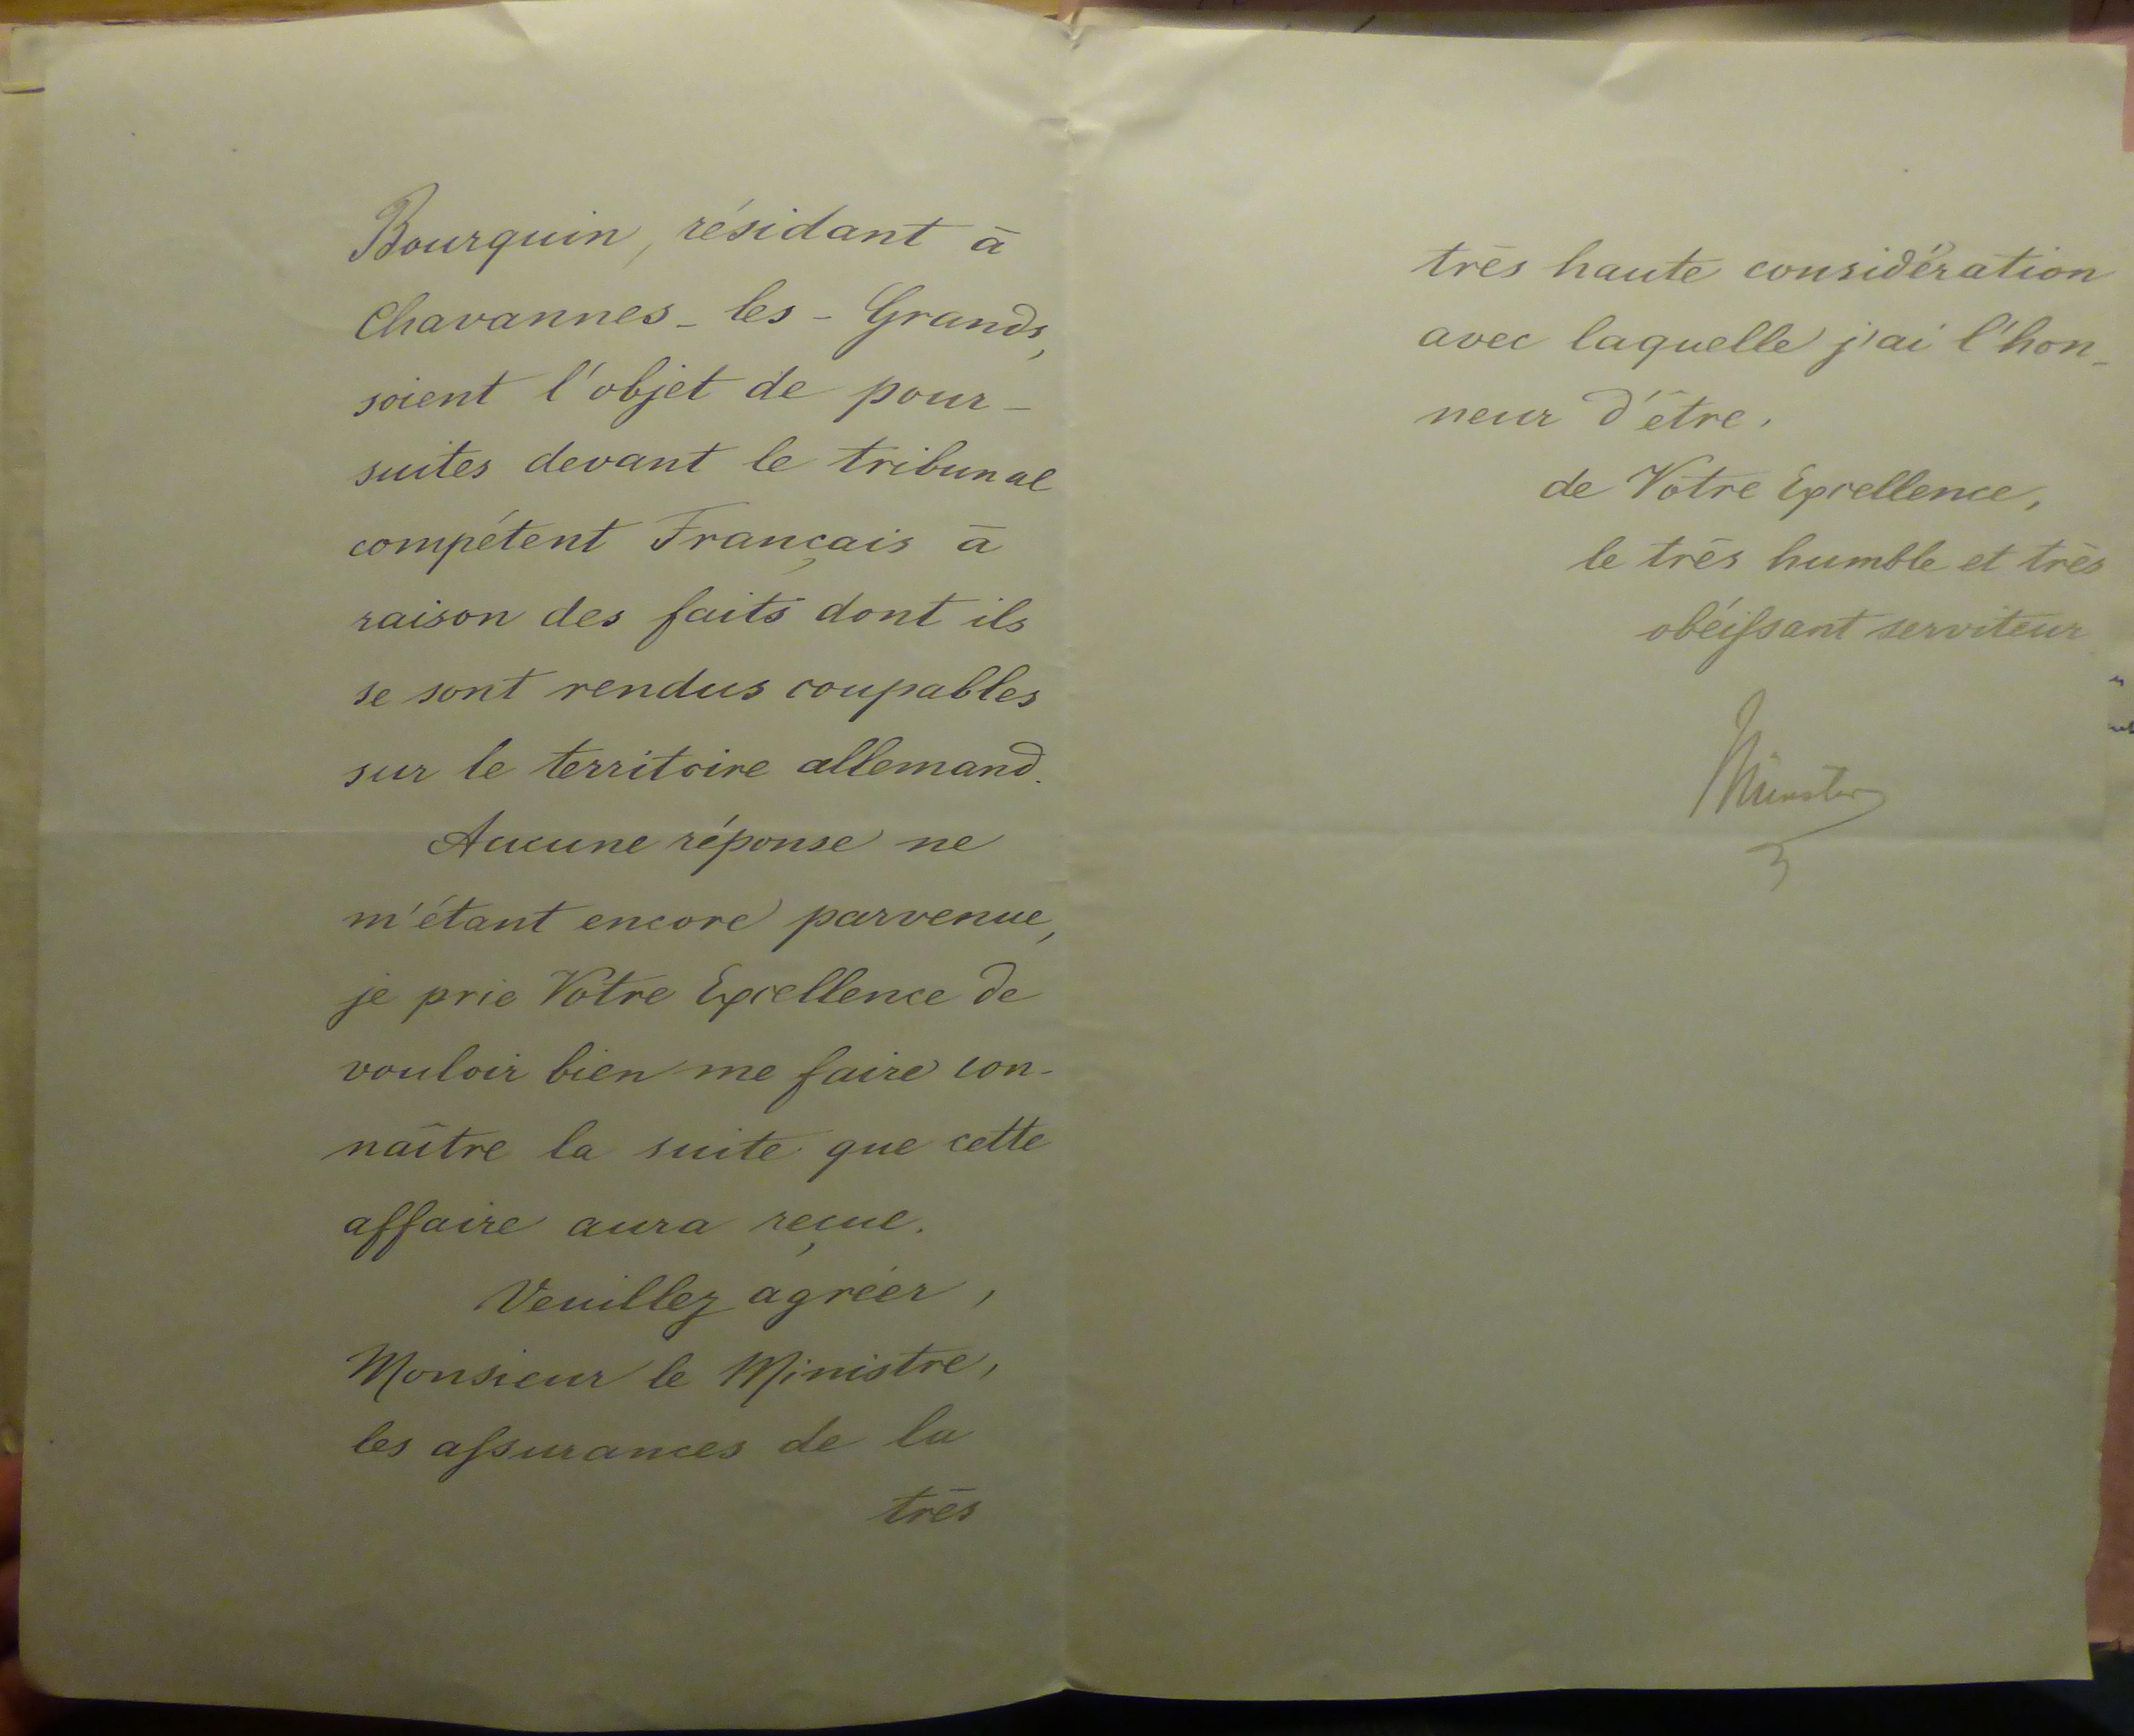 Bourquin, résidant à
Chavannes-les-Grands,
soient l'objet de pour-
suites devant le tribunal
compétent Français à
raison des faits dont ils
se sont rendus coupables
sur le territoire allemand.
Aucune réponse ne
m'étant encore parvenue,
je prie Votre Excellence de
vouloir bien me faire con-
naître la suite que cette
affaire aura reçue.
Veuillez agréer,
Monsieur le Ministre,
les assurances de la
très
très haute considération
avec laquelle j'ai l'hon-
neur d'être,
de Votre Excellence,
le très humble et très
obéissant serviteur
Münster